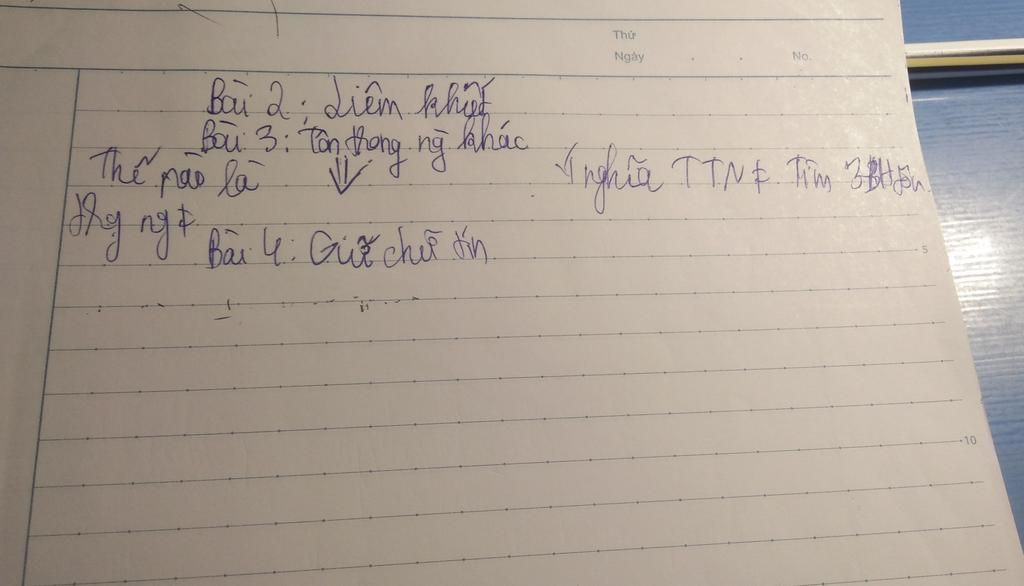 Thứ
Ngày . . No.
Bài 2: Liêm khiết
Bài 3: Tôn trọng ng khác
Thế nào là nghĩa TTN Tìm 3
Bài 4: Giữ chữ tín
5
10